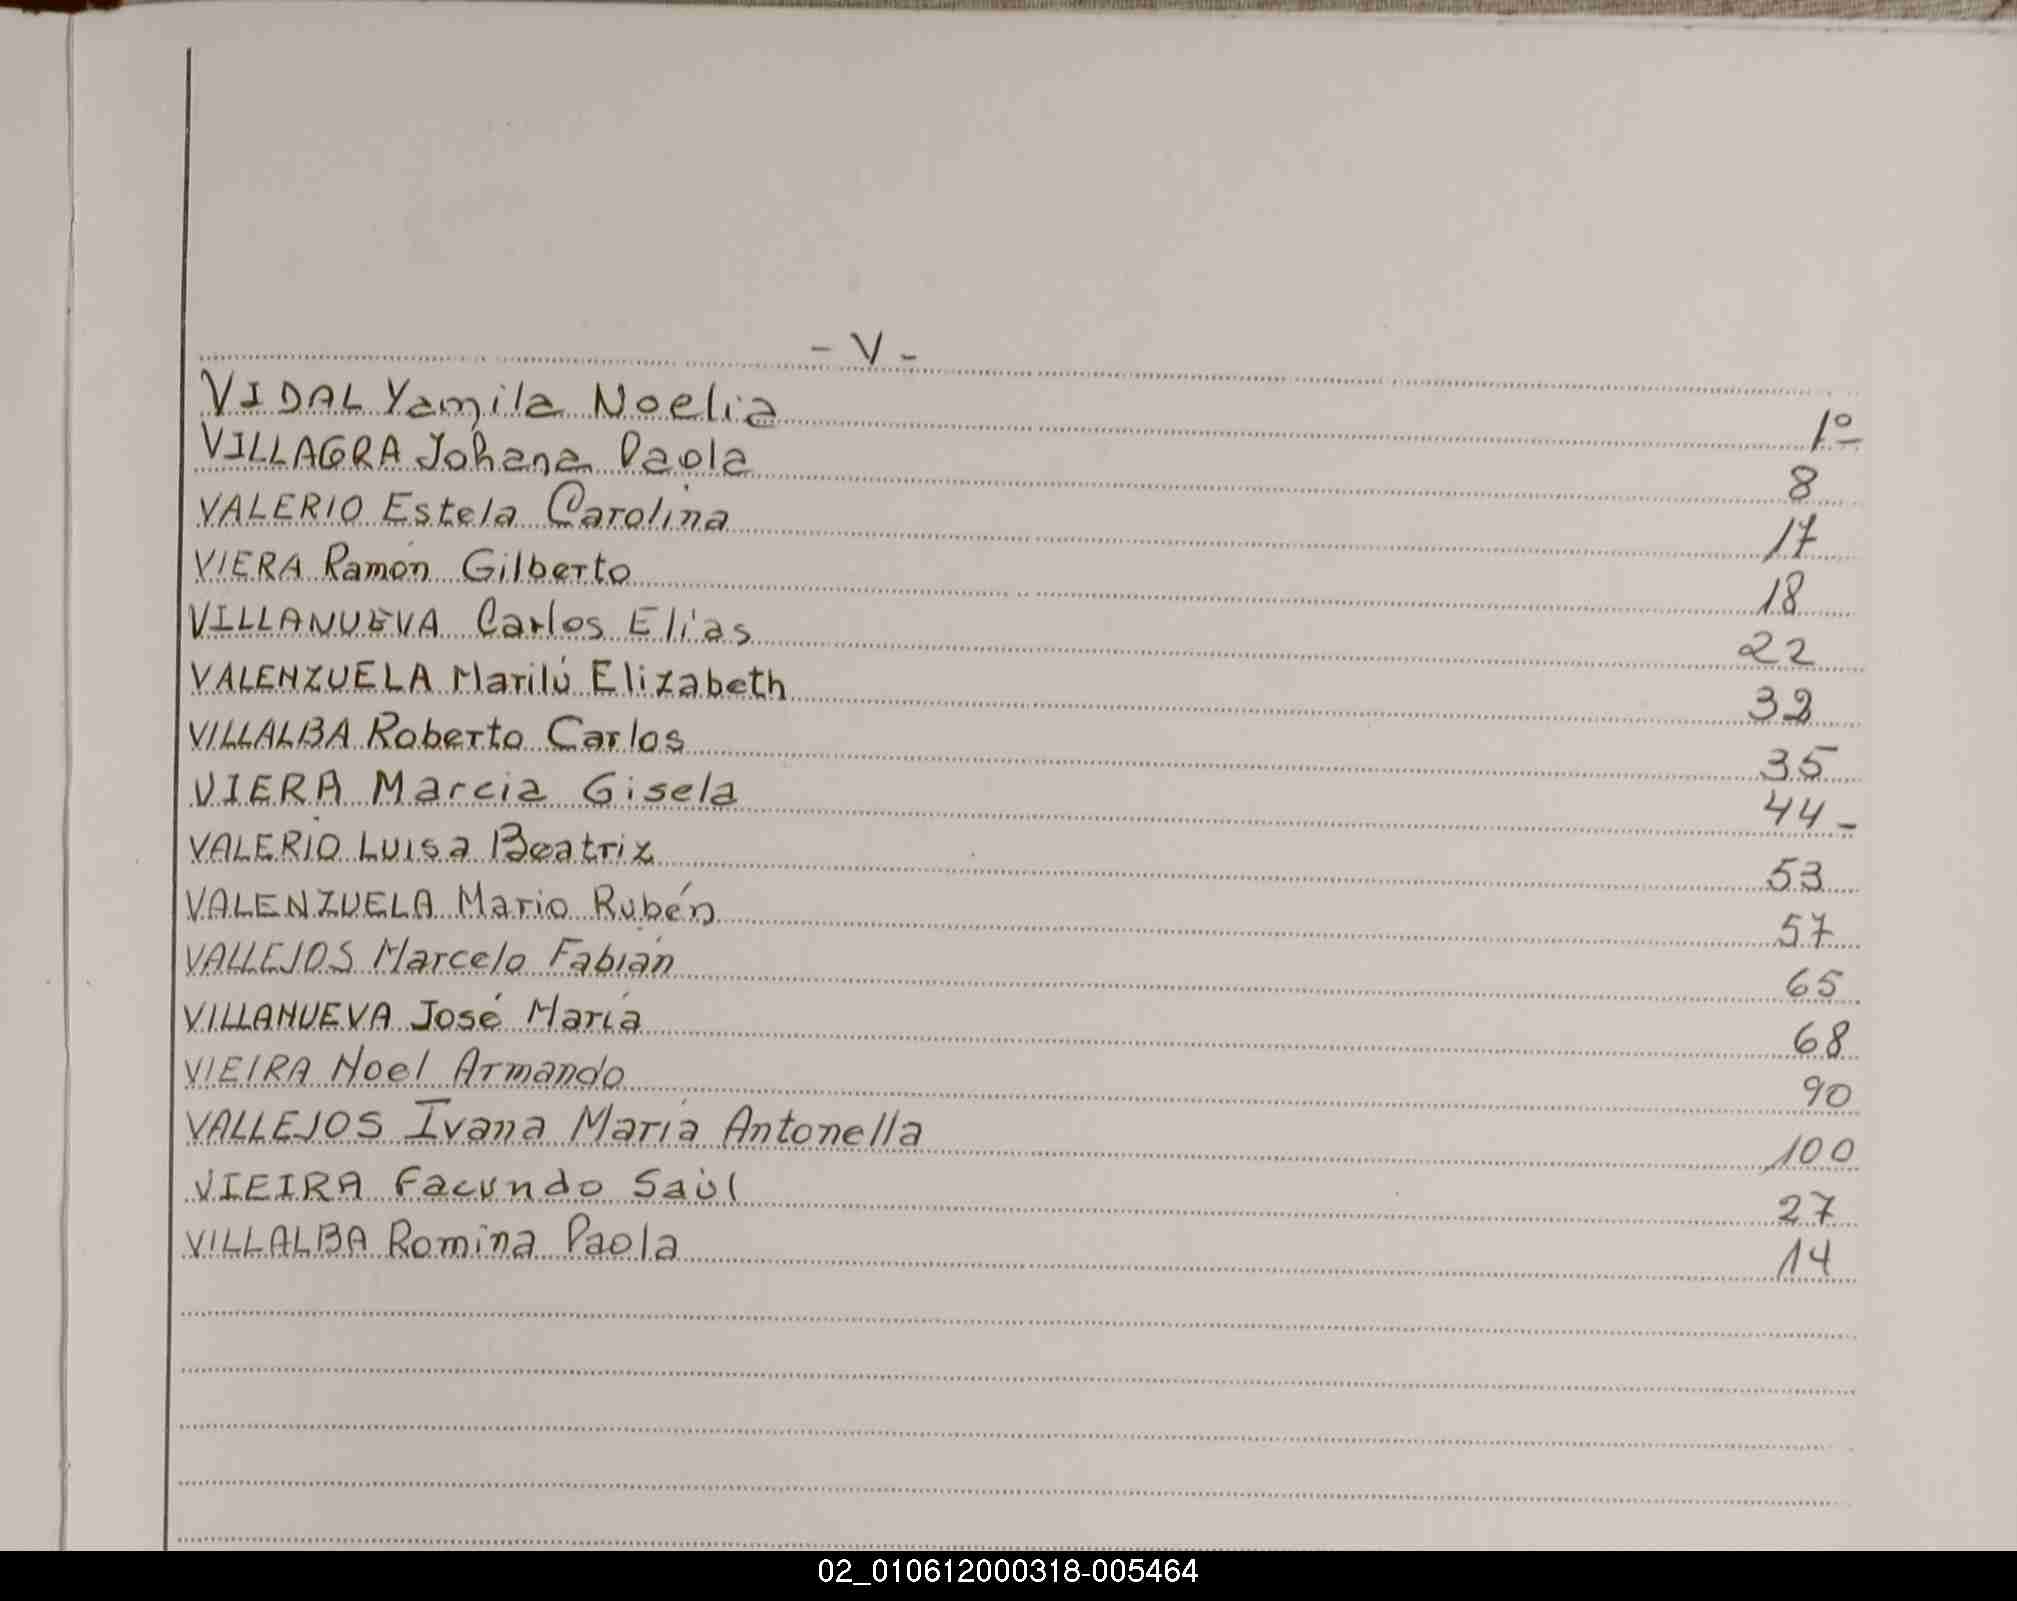 - V -
VIDAL Yamila Noelia 1º
VILLAGRA Johana Paola 8
VALERIO Estela Carolina 17
VIERA Ramón Gilberto 18
VILLANUEVA Carlos Elías 22
VALENZUELA Marilú Elizabeth 32
VILLALBA Roberto Carlos 35
VIERA Marcia Gisela 44 -
VALERIO Luisa Beatriz 53
VALENZUELA Mario Rubén 57
VALLEJOS Marcelo Fabián 65
VILLANUEVA José María 68
VIEIRA Noel Armando 90
VALLEJOS Ivana María Antonella 100
VIEIRA Facundo Saúl 27
VILLALBA Romina Paola 14
02_010612000318-005464